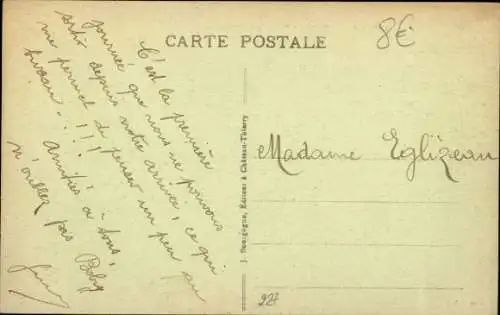 CARTE POSTALE
8€
C'est la première
journée que nous ne pouvons
sortir depuis notre arrivée, ce qui
me permet de penser un peu au
bureau...!!!
Amitiés à tous,
n'oubliez pas Boby
J. Bourgogne, Éditeur à Château-Thierry
Madame Eglizeau
227